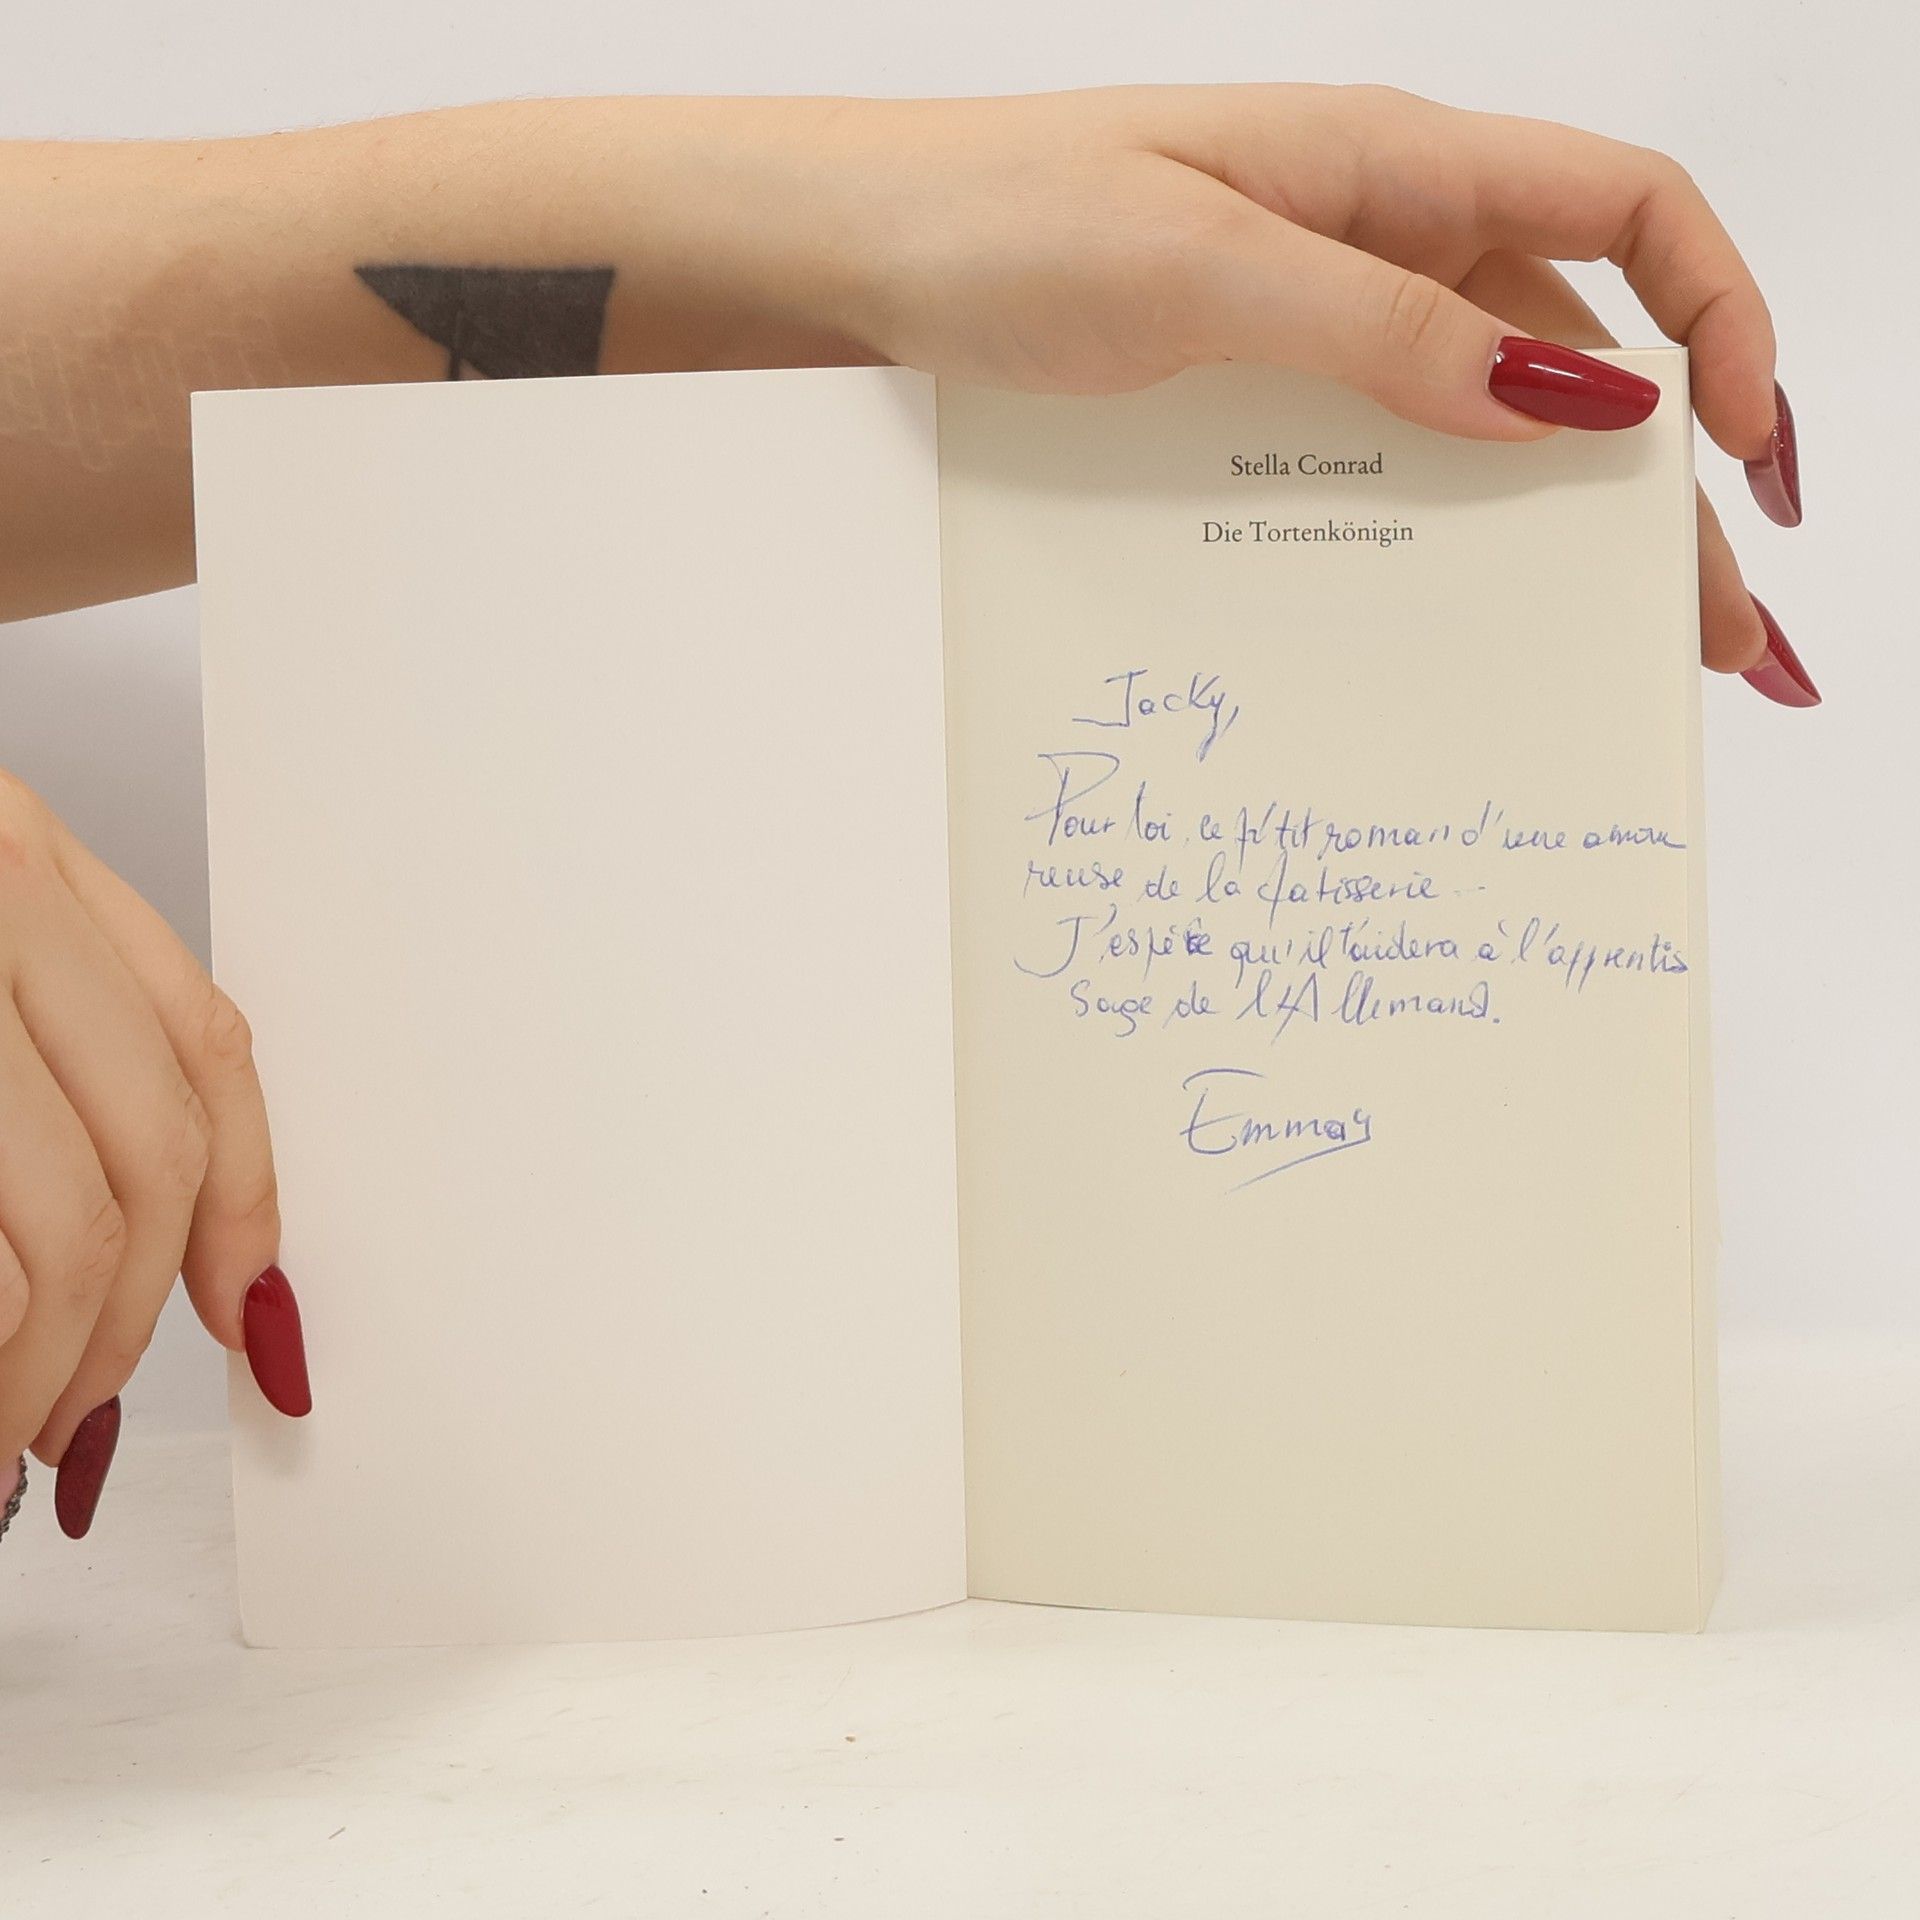 Stella Conrad
Die Tortenkönigin
Jacky,
Pour toi, ce p'tit roman d'une amou
reuse de la patisserie...
J'espère qu'il t'aidera à l'apprentis
sage de l'Allemand.
Emmay